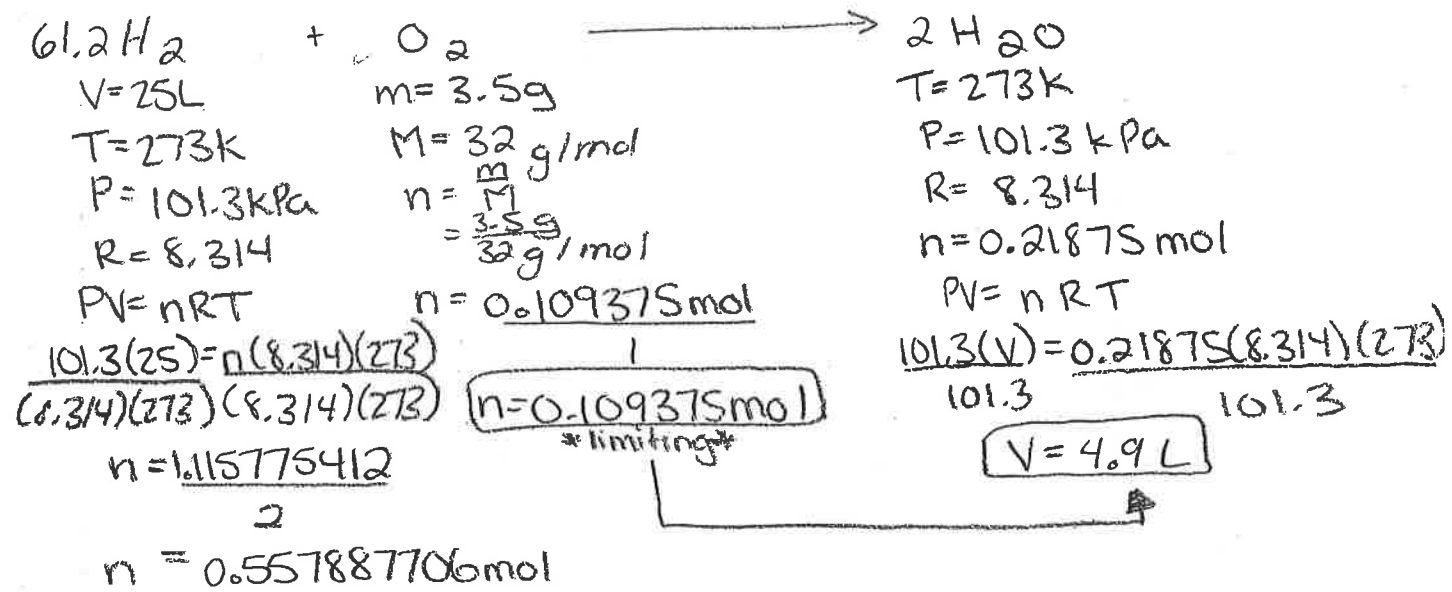 61.2H2 + O2 → 2H2O
V=25L
T=273K
P=101.3kPa
R=8.314
PV=nRT
101.3(25)=n(8.314)(273)
(8.314)(273) (8.314)(273)
n=1.115775412
2
n=0.557887706mol
m=3.5g
M=32g/mol
n=m/M
=3.5g/32g/mol
n=0.109375mol
1
n=0.109375mol
*limiting*
T=273K
P=101.3kPa
R=8.314
n=0.21875mol
PV=nRT
101.3(V)=0.21875(8.314)(273)
101.3 101.3
V=4.9L